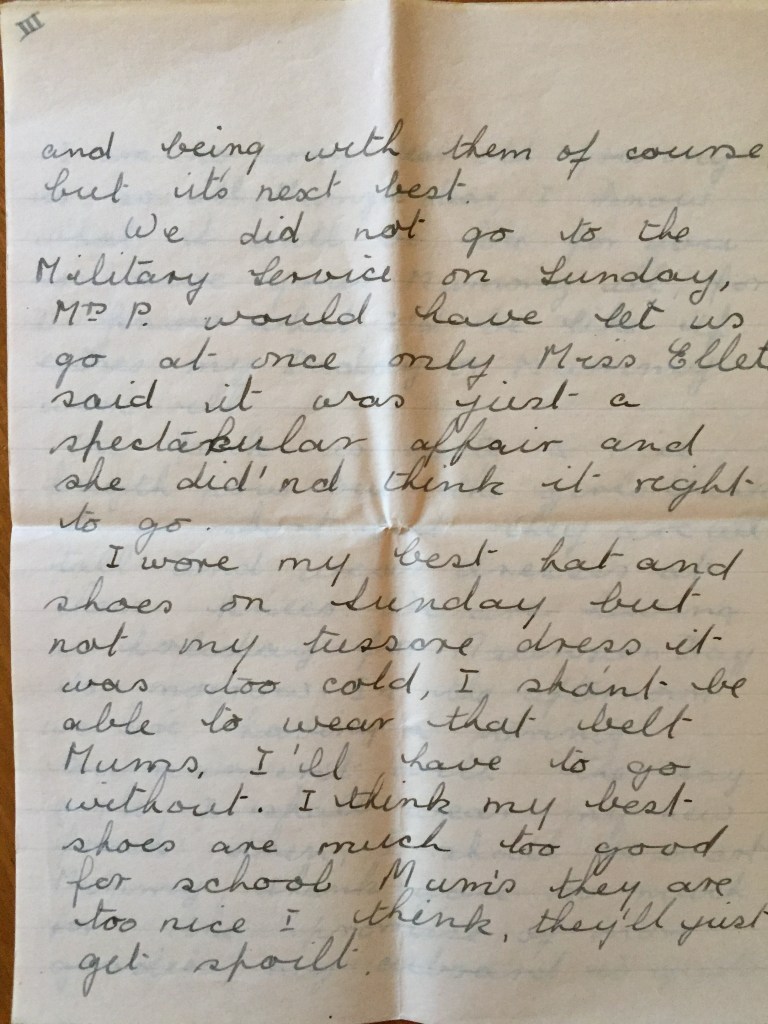 III
and being with them of course
but it's next best.
We did not go to the
Military Service on Sunday,
Mrs P. would have let us
go at once only Miss Ellet
said it was just a
spectarkular affair and
she did'nd think it right
to go.
I wore my best hat and
shoes on Sunday but
not my tussore dress it
was too cold, I sha'nt be
able to wear that belt
Mums, I'll have to go
without. I think my best
shoes are much too good
for school Mums they are
too nice I think, they'll just
get spoilt.